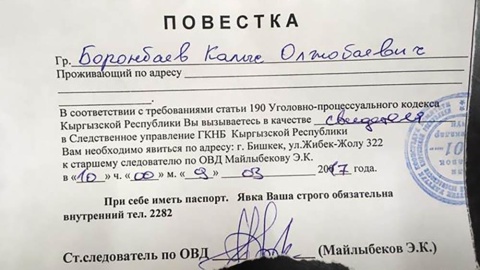 ПОВЕСТКА
Гр. Боронбаев Калыс Олжобаевич
Проживающий по адресу
В соответствии с требованиями статьи 190 Уголовно-процессуального кодекса
Кыргызской Республики Вы вызываетесь в качестве свидетеля
в Следственное управление ГКНБ Кыргызской Республики
Вам необходимо явиться по адресу: г. Бишкек, ул.Жибек-Жолу 322
к старшему следователю по ОВД Майлыбекову Э.К.
в «10» ч. «00» м. « 9 » 03 2017 года.
При себе иметь паспорт. Явка Ваша строго обязательна
внутренний тел. 2282
Ст.следователь по ОВД (Майлыбеков Э.К.)